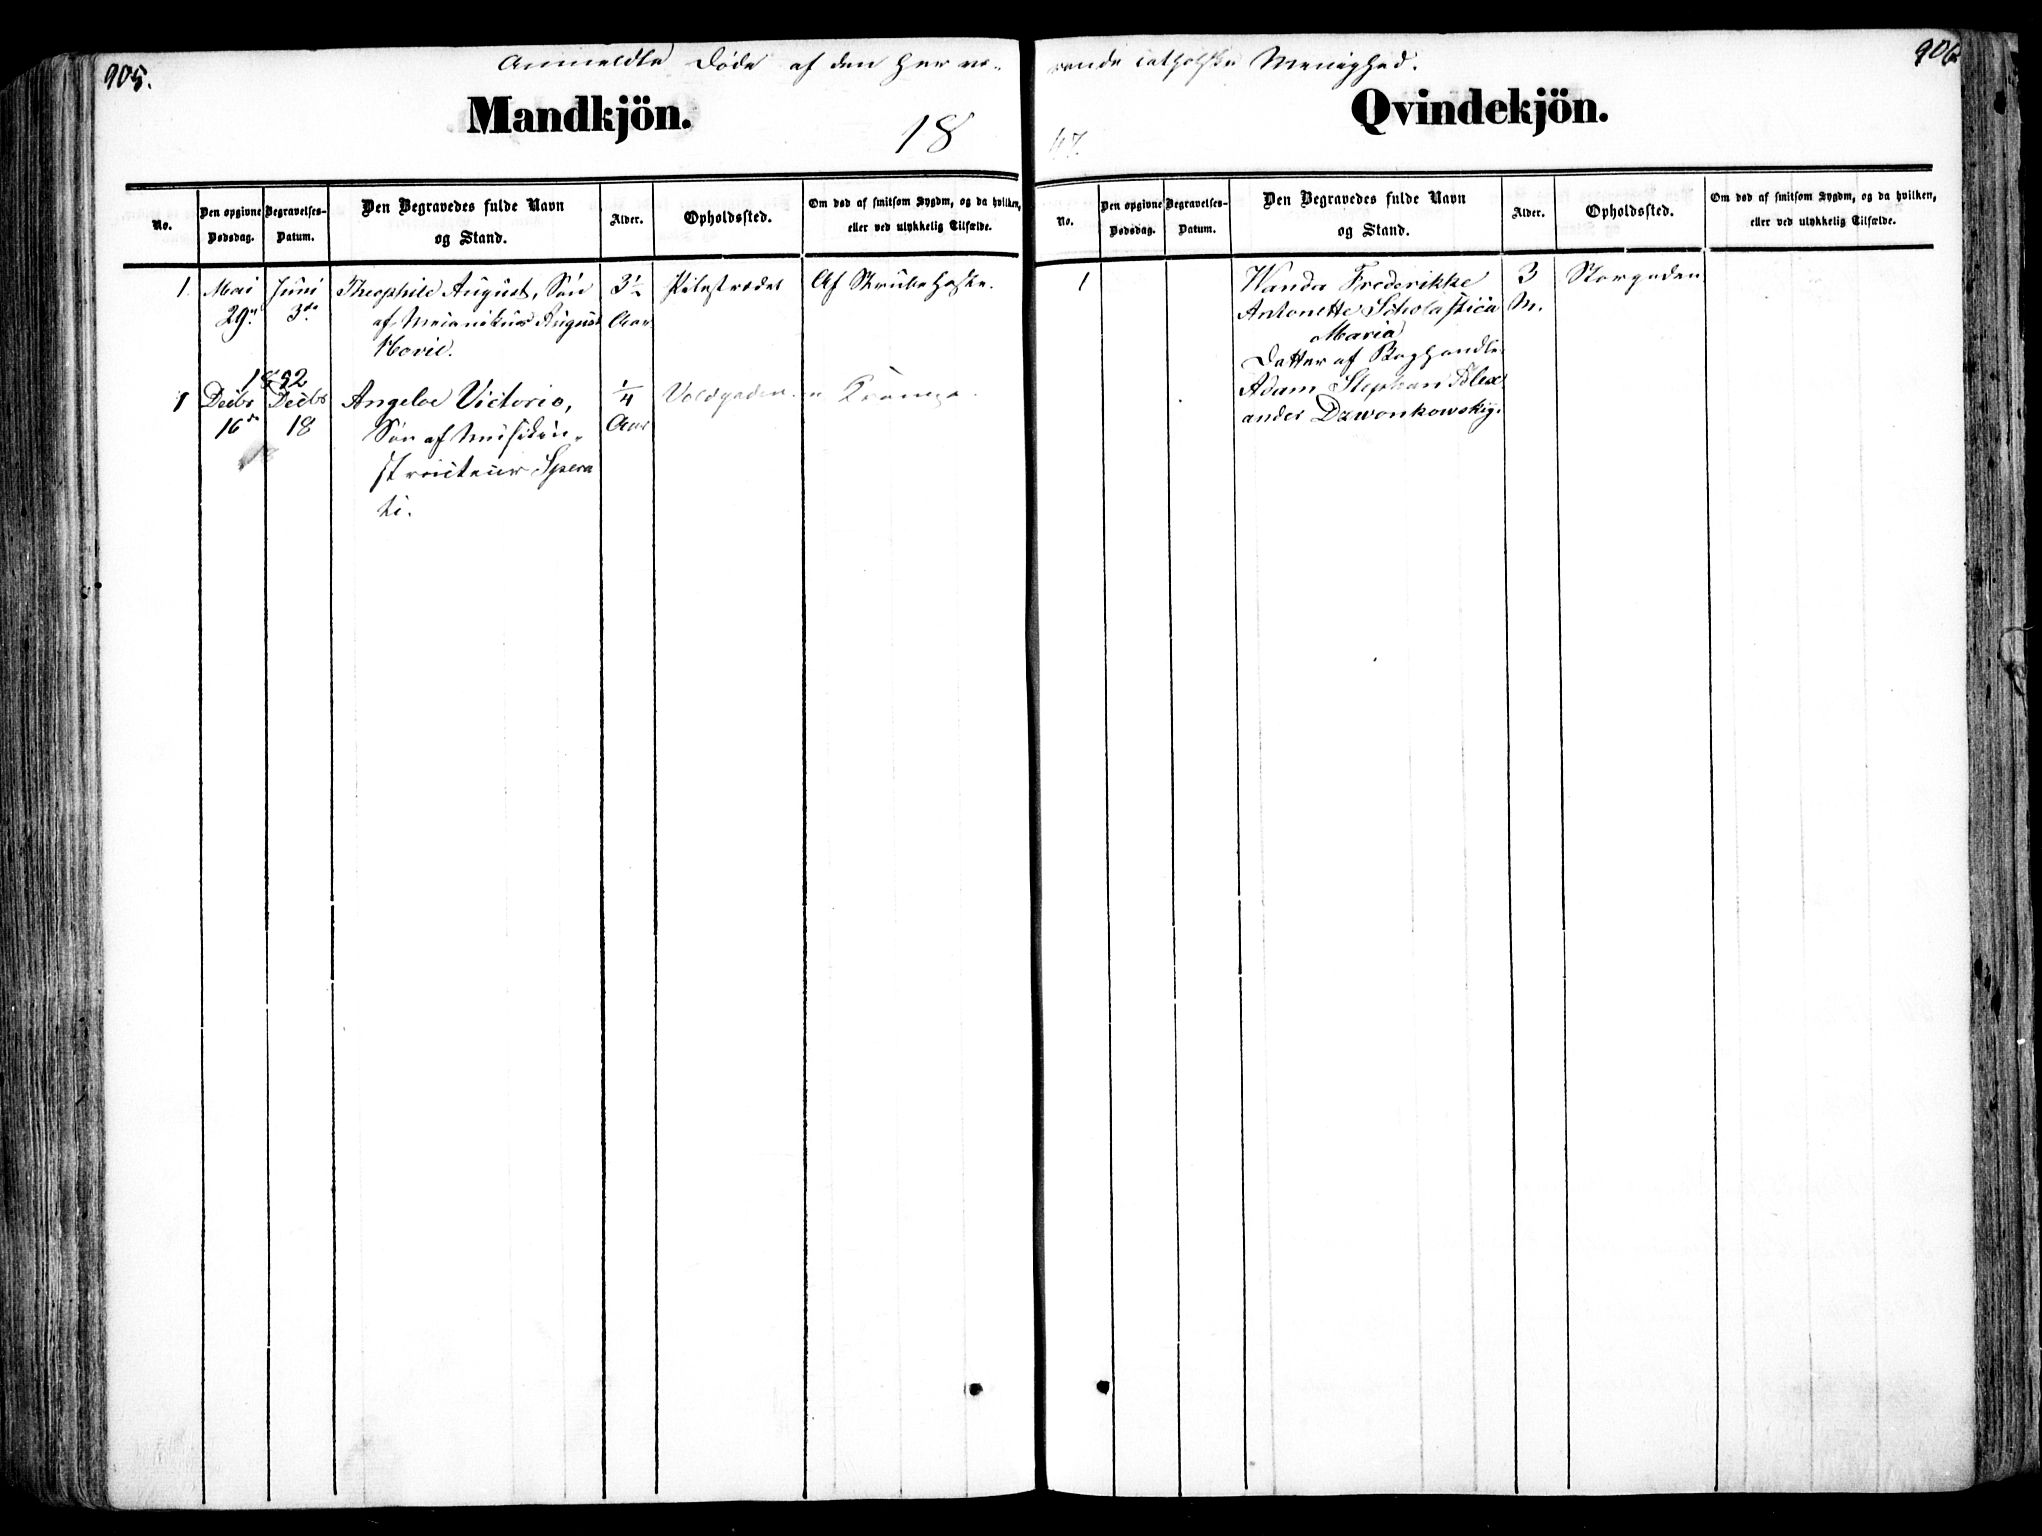 905.
Anmeldte Døde af den hervæ-
Mandkjön.
18
No.
Den opgivne Dødsdag.
Begravelses-Datum.
Den Begravedes fulde Navn og Stand.
Alder.
Opholdssted.
Om død af smitsom Sygdm, og da hvilken, eller ved ulykkelig Tilfælde.
1. Mai Juni Theophile August, Søn 3½ Pilestrædet Af Strubehoste.
29de 3die af Mechanikus August Aar
1852
1 Decbr Decbr Angeloe Victorio, ¼ Voldgaden
16de 18 Søn af Musikin- Aar
structeur Spera
ti.
906
rende catholske Menighed.
Qvindekjön.
47
No.
Den opgivne Dødsdag.
Begravelses-Datum.
Den Begravedes fulde Navn og Stand.
Alder.
Opholdssted.
Om død af smitsom Sygdm, og da hvilken, eller ved ulykkelig Tilfælde.
1 Wanda Frederikke 3 Storgaden
Antonette Scholastica M.
Maria
Datter af Boghandler
Adam Stephan Alex
ander Dzwonkowsky.